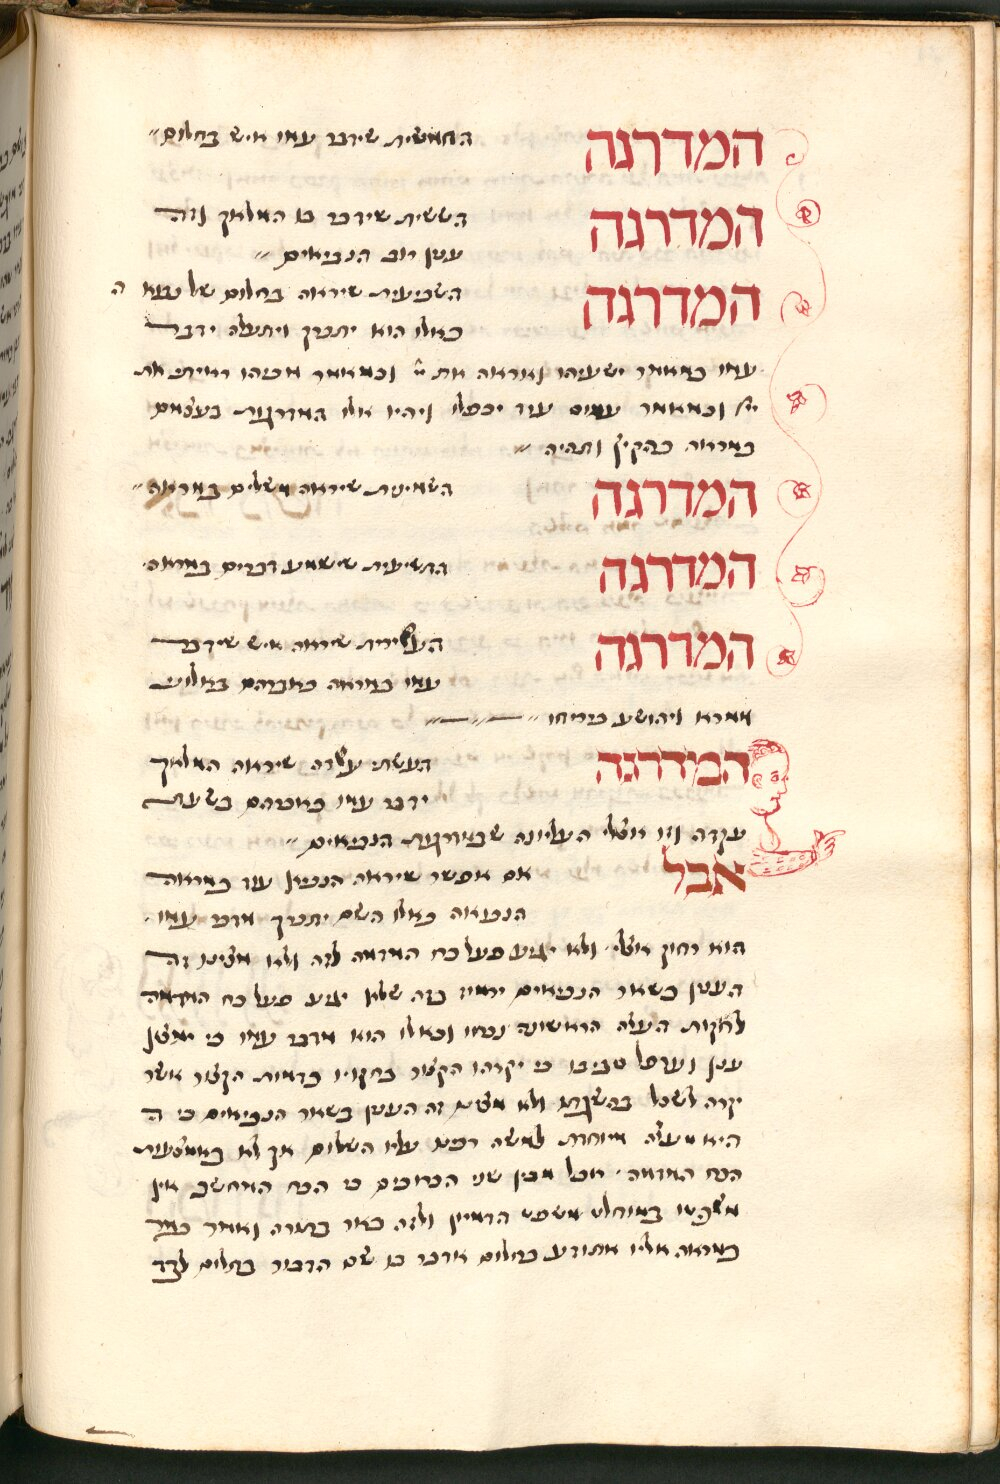 המדרגה החמשית שידבר עמו איש בחלום
המדרגה הששית שידבר בו המלאך וזה
ענין רוב הנביאים
המדרגה השביעית שיראה בחלום של נבוא ה
כאלו הוא יתברך ויתעלה ידבר
עמו כמאמר ישעיהו ואראה את יי וכמאמר מיכיהו ראיתי את
יי וכמאמר עמוס עוד יכפלו ויהיו אלו המדרגות בעצמם
במראה בהקיץ ותהיה
המדרגה השמינית שיראה משלים במראה
המדרגה התשיעית שישמע דברים במראה
המדרגה העשירית שיראה איש שידבר
עמו במראה כאברהם באלוני
ממרא ויהושע ביריחו
המדרגה העשתי עשרה שיראה המלאך
ידבר עמו כאברהם בשעת
עקדה וזו אצלי העליונה שבמדרגות הנביאים
אבל אם אפשר שיראה הנביא עוד במראה
הנבואה כאלו השם יתברך מדבר עמו
הוא רחוק אצלי ולא יגיע פועל כח המדמה לזה ולא מצינו זה
הענין בשאר הנביאים יראו בזה שלא יגיע פועל כח המדמה
לחקות העלה הראשונה וכאלו הוא מדבר עמו כי ימצאו
ענן וערפל סביבו כי יקרהו הקצור בחקויו כדמות הקצור אשר
יקרה לשכל בהשגתו ולא מצינו זה הענין בשאר הנביאים כי ה
היא מעלה מיוחדת למשה רבינו עליו השלום אך לא באמצעות
הכח המדמה אבל מבין שני הכרובים כי הכח המחשב אין
משפטו במוחלט משפט הדמיון ולזה באר בתורה ואמר
במראה אליו אתודע בחלום אדבר בו שם הדבור בחלום לבד